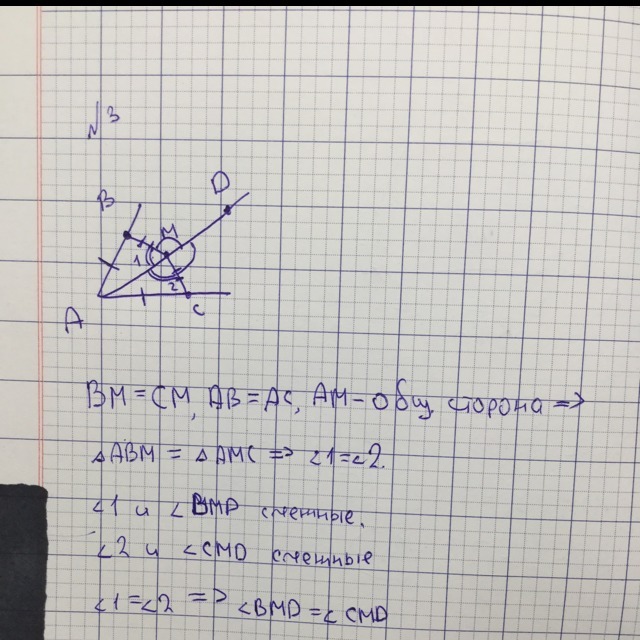 №3
D
B
M
1
2
A
C
BM = CM, AB = AC, AM - общ. сторона =>
△ABM = △AMC => ∠1=∠2.
∠1 и ∠BMD смежные.
∠2 и ∠CMD смежные
∠1=∠2 => ∠BMD=∠CMD